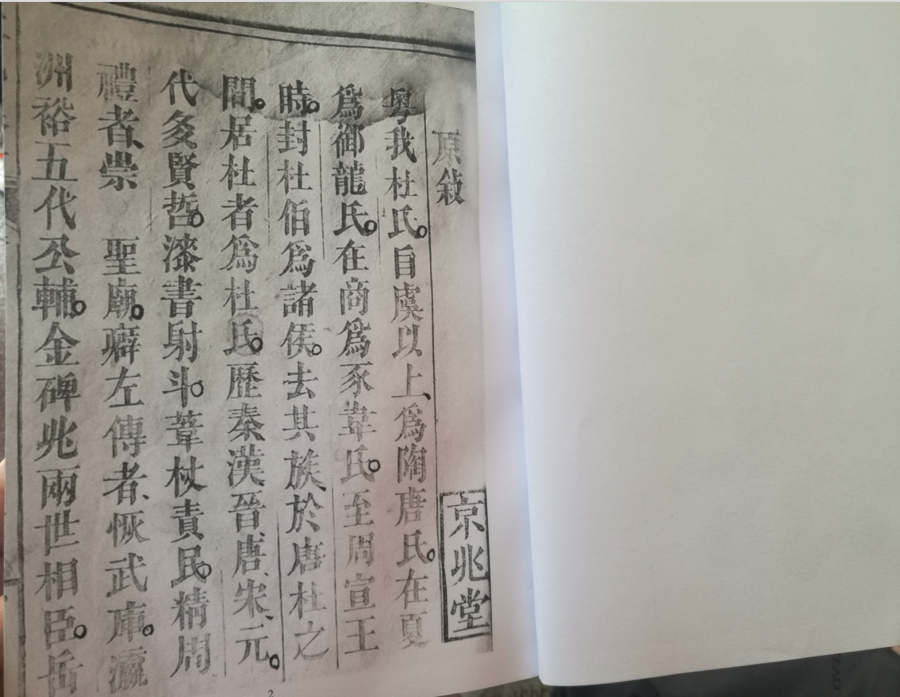 原敍
京兆堂
粵我杜氏。自虞以上、爲陶唐氏。在夏
爲御龍氏。在商爲豕韋氏。至周宣王
時。封杜伯爲諸侯。去其族於唐杜之
間。居杜者爲杜氏。歷秦漢晉唐、宋、元。
代多賢哲。漆書射斗。葦杖責民。精周
禮者、崇 聖廟。癖左傳者、恢武庫。瀛
洲裕五代公輔。金碑兆兩世相臣。岳
2